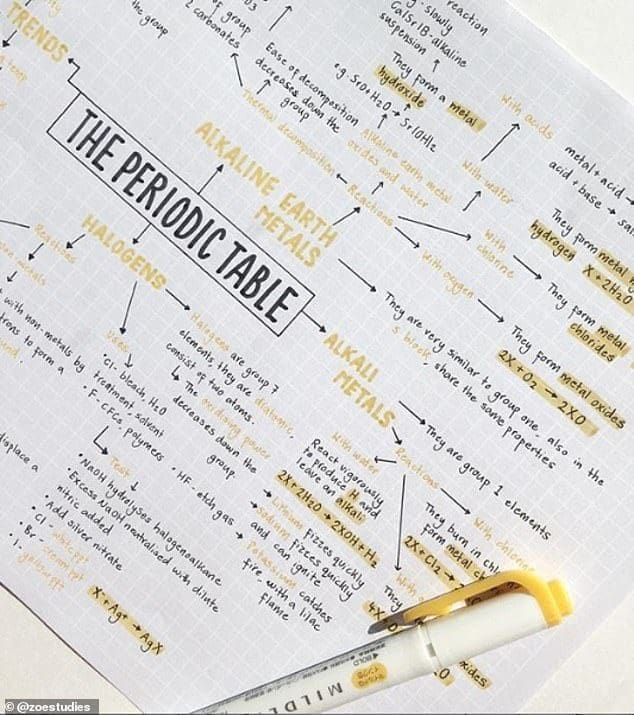 TRENDS
the group
of group
2 carbonates
Ease of decomposition
decreases down the
group
Thermal decomposition
reaction
slowly
Ca/Sr/B-alkaline
suspension
They form a metal
hydroxide
e.g. SrO+H2O → Sr(OH)2
Alkaline earth metal
oxides and water
With acids
metal + acid →
acid + base →
With water
They form metal
hydrogen X + 2H2O
THE PERIODIC TABLE
ALKALINE EARTH
METALS
Reactions
With
chlorine
They form metal
chlorides
With oxygen
They form metal oxides
2X + O2 → 2XO
They are very similar to group one, also in the
s block, share the same properties
HALOGENS
Reactions
metals
with non-metals by
to form a
Uses
• Cl - bleach, H2O
treatment, solvent
• F - CFCs, polymers
• HF - etch gas
Halogens are group 7
elements, they are diatomic,
consist of two atoms.
The oxidising power
decreases down the
group.
Test
• NaOH hydrolyses halogenoalkane
• Excess NaOH neutralised with dilute
nitric added
• Add silver nitrate
• Cl - white ppt
• Br - cream ppt
• I -
X- + Ag+ → AgX
displace a
ALKALI
METALS
They are group 1 elements
Reactions
With water
React vigorously
to produce H2 and
leave an alkali
2X + 2H2O → 2XOH + H2
Lithium fizzes quickly
sodium fizzes quickly
and can ignite
Potassium catches
fire with a lilac
flame
With chlorine
They burn in
form metal
2X + Cl2 →
They
4X
BOLD
MILDL
@zoestudies